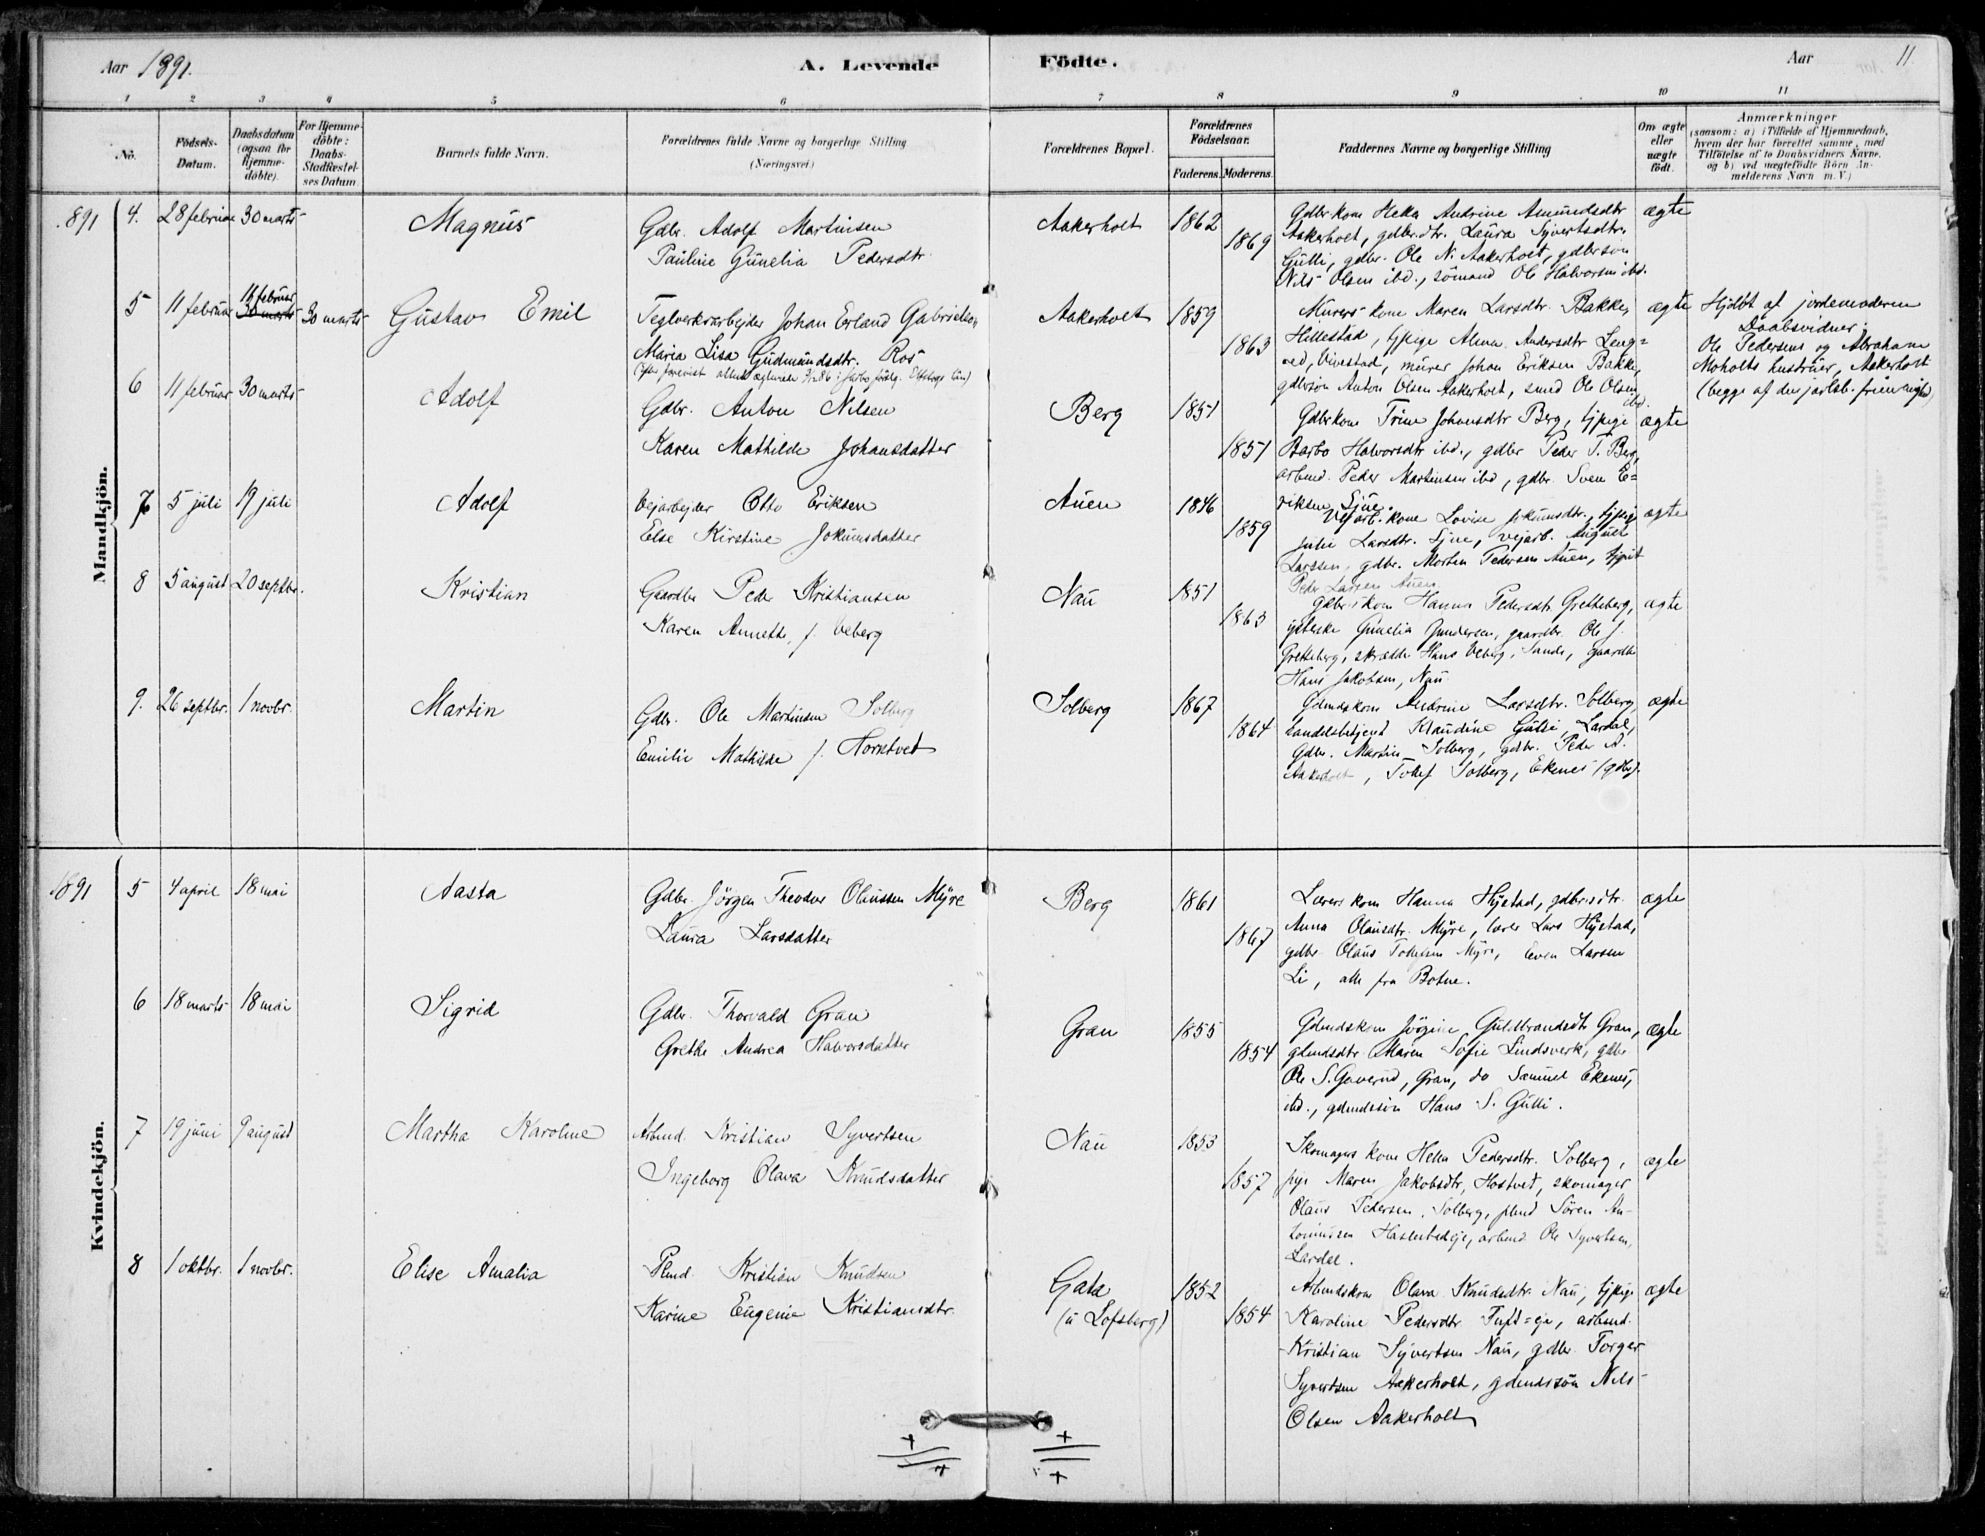 Aar 1891.
A. Levende Födte.
Aar
11
1 2 3 4 5 6 7 8 9 10 11
No.
Födsels-Datum.
Daabsdatum (ogsaa for hjemme-döbte).
For Hjemme-döbte: Daabs-Stadfæstel-ses Datum
Barnets fulde Navn.
Forældrenes fulde Navne og borgerlige Stilling (Næringsvei)
Forældrenes Bopæl.
Forældrenes Födselsaar.
Faderens. Moderens.
Faddernes Navne og borgerlige Stilling
Om ægte eller uægte födt.
Anmærkninger
(saasom: a) i Tilfælde af Hjemmedaab,
hvem der har forrettet samme, med
Tilföielse af to Daabsvidners Navne,
og b) ved uægtefödte Börn An-
melderens Navn m. V.)
Mandkjön.
891 4. 28 februar 30 marts Magnus
Gdbr. Adolf Martinsen
Pauline Gunelia Pedersdtr.
Aakerholt 1862 1869
Gdbr kone Helle Andrine Amundsdtr
Aakerholt, gdbr.dtr. Laura Syvertsdtr.
Gulli, gdbr. Ole N. Aakerholt, gdbrsön
Nils Olsen ibd., sömand Ole Halvorsen ibd.
ægte
5 11 februar 11 februar 30 marts 30 marts Gustav Emil
Teglverksarbejder Johan Erland Gabrielsen
Maria Lisa Gudmundsdtr. Ros
Aakerholt 1859 1863
Murers kone Maren Larsdtr. Bakke,
Hillestad, tjpige Alma Andersdtr Leng=
ved, Vivestad, murer Johan Eriksen Bakke,
gdbrsön Anton Olsen Aakerholt, smed Ole Olsen
ibd.
ægte
Hjdöbt af jordemoderen
Daabsvidner:
Ole Pedersens og Abraham
Moholts hustruer, Aakerholt
(begge af den jarlsb. frimenighed)
6 11 februar 30 marts Adolf
Gdbr. Anton Nilsen
Karen Mathilde Johansdatter
Berg 1851 1851
Gdbrkone Trine Johansdtr Berg, tjpige
Barbo Halvorsdtr ibd., gdbr Peder T. Berg,
arbmd. Peder Martinsen ibd, gdbr. Sven E=
riksen Sjue.
ægte
7 5 juli 19 juli Adolf
Vejarbejder Otto Eriksen
Else Kirstine Jokumsdatter
Auen 1846 1859
Vejarb. kone Lovise Jokumsdtr., tjpige
Julie Larsdtr. Sjue, vejarb. August
Larssen, gdbr. Morten Pedersen Auen, tjgut
Peder Larsen Auen
ægte
8 5 august 20 septbr. Kristian
Gaardbr Peder Kristiansen
Karen Annette f. Veberg
Nau 1851 1863
Gdbr.s kone Hanna Pedersdtr Gretteberg,
Gunelia Gundersen, gaardbr. Ole J.
Gretteberg, skrædder Hans Veberg, Sande, gaardbr
Hans Jakobsen, Nau
ægte
9. 26 septbr. 1 novbr. Martin
Gdbr. Ole Martinsen Solberg
Emilie Mathilde f. Horntvet
Solberg 1867 1864
Gdmdskone Andrine Larsdtr. Solberg,
handelsbetjent Klaudine Gulli, Lardal,
Gdbr. Martin Solberg, gdbr. Peder A.
Aakerholt, Tollef Solberg, Ekenes (gdbr).
ægte
Kvindekjön.
1891 5 4 april 18 mai Aasta
Gdbr. Jörgen Theodor Olaussen Myre
Laura Larsdatter
Berg 1861 1867
Lærers kone Hanna Hystad, gdbrsdtr.
Anna Olausdtr. Myre, lærer Lars Hystad,
gdbr. Olaus Tollefsen Myre, Even Larsen
Li, alle fra Botne.
ægte
6 18 marts 18 mai Sigrid
Gdbr. Thorvald Gran
Grethe Andrea Halvorsdatter
Gran 1855 1854
Gdmdskone Jörgine Guldbrandsdtr Gran,
gdmdsdtr. Maren Sofie Lindsverk, gdbr
Ole S. Goverud, Gran, do Samuel Ekenes,
ibd., gdmdssön Hans S. Gulli.
ægte
7 19 juni 9 august Martha Karoline
Arbmd. Kristian Syvertsen
Ingeborg Olava Knudsdatter
Nau 1853 1857
Skomagers kone Helle Pedersdtr. Solberg,
pige Maren Jakobsdtr, Hostvet, skomager
Olaus Pedersen, Solberg, plmd Sören An-
tonissen Haslestadeje, arbmd Ole Syvertsen,
Lardal.
ægte
8 1 oktbr. 1 novbr. Elise Amalia
Plmd. Kristian Knudsen
Karine Eugenie Kristiansdtr.
Gata
(u Lofsberg)
1852 1854
Arbmdskone Olava Knudsdtr Nau, tjpige
Karoline Pedersdtr Tuft=eje, arbmd.
Kristian Syvertsen Nau, gdbr. Torger
Syvertsen Aakerholt, gdmdssön Nils
Olsen Aakerholt
ægte